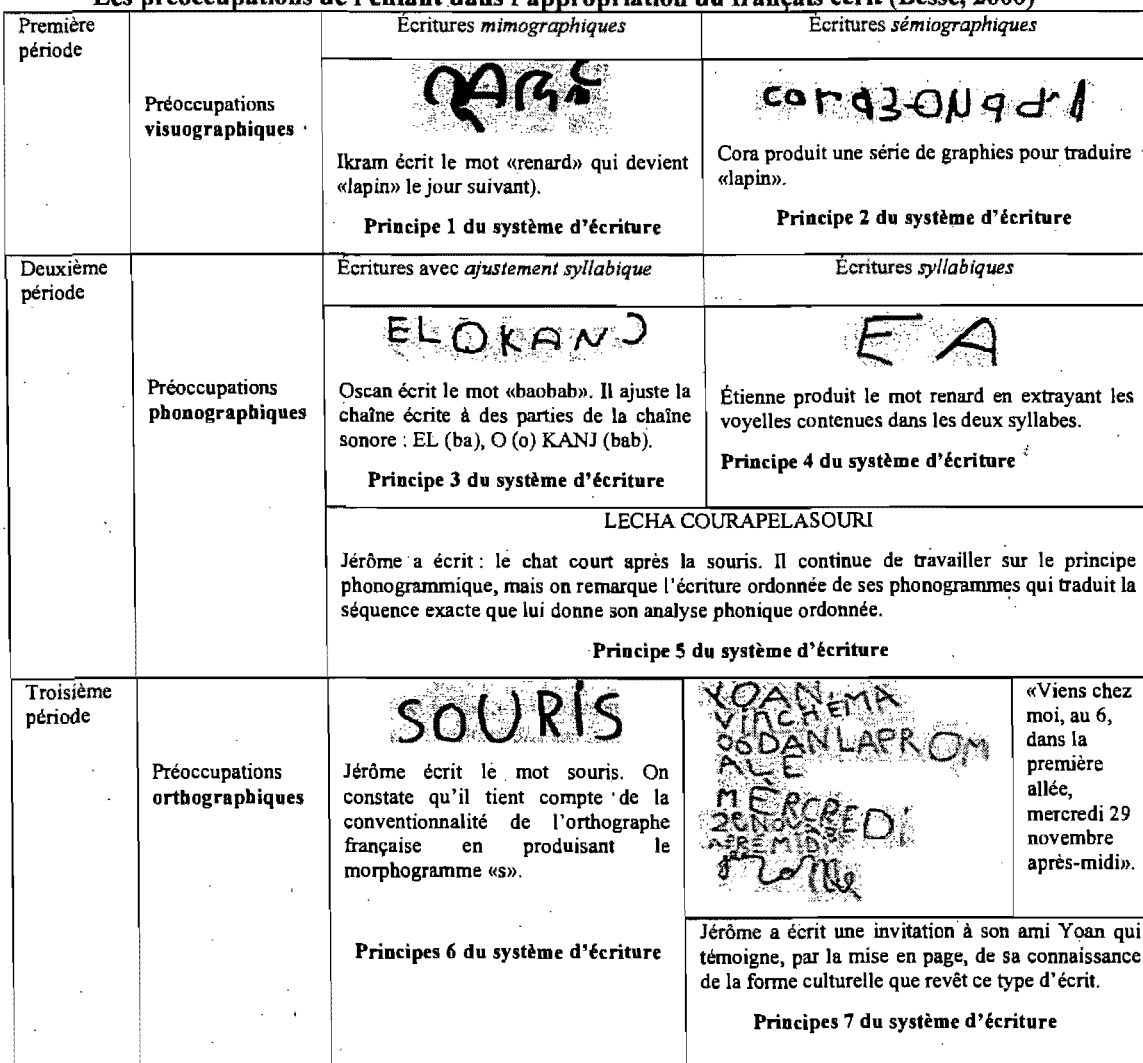 Les préoccupations de l'enfant dans l'appropriation du français écrit (Besse, 2000)
Première
période
Préoccupations
visuographiques
Écritures mimographiques
Ikram écrit le mot «renard» qui devient
«lapin» le jour suivant).
Principe 1 du système d'écriture
Écritures sémiographiques
Cora produit une série de graphies pour traduire
«lapin».
Principe 2 du système d'écriture
Deuxième
période
Préoccupations
phonographiques
Écritures avec ajustement syllabique
ELOKANJ
Oscan écrit le mot «baobab». Il ajuste la
chaîne écrite à des parties de la chaîne
sonore : EL (ba), O (o) KANJ (bab).
Principe 3 du système d'écriture
Écritures syllabiques
E A
Étienne produit le mot renard en extrayant les
voyelles contenues dans les deux syllabes.
Principe 4 du système d'écriture
LECHA COURAPELASOURI
Jérôme a écrit : le chat court après la souris. Il continue de travailler sur le principe
phonogrammique, mais on remarque l'écriture ordonnée de ses phonogrammes qui traduit la
séquence exacte que lui donne son analyse phonique ordonnée.
Principe 5 du système d'écriture
Troisième
période
Préoccupations
orthographiques
SOURIS
Jérôme écrit le mot souris. On
constate qu'il tient compte de la
conventionnalité de l'orthographe
française en produisant le
morphogramme «s».
Principes 6 du système d'écriture
YOAN
VINCHEMA
06DANLAPROM
ALE
MERCREDI
«Viens chez
moi, au 6,
dans la
première
allée,
mercredi 29
novembre
après-midi».
Jérôme a écrit une invitation à son ami Yoan qui
témoigne, par la mise en page, de sa connaissance
de la forme culturelle que revêt ce type d'écrit.
Principes 7 du système d'écriture